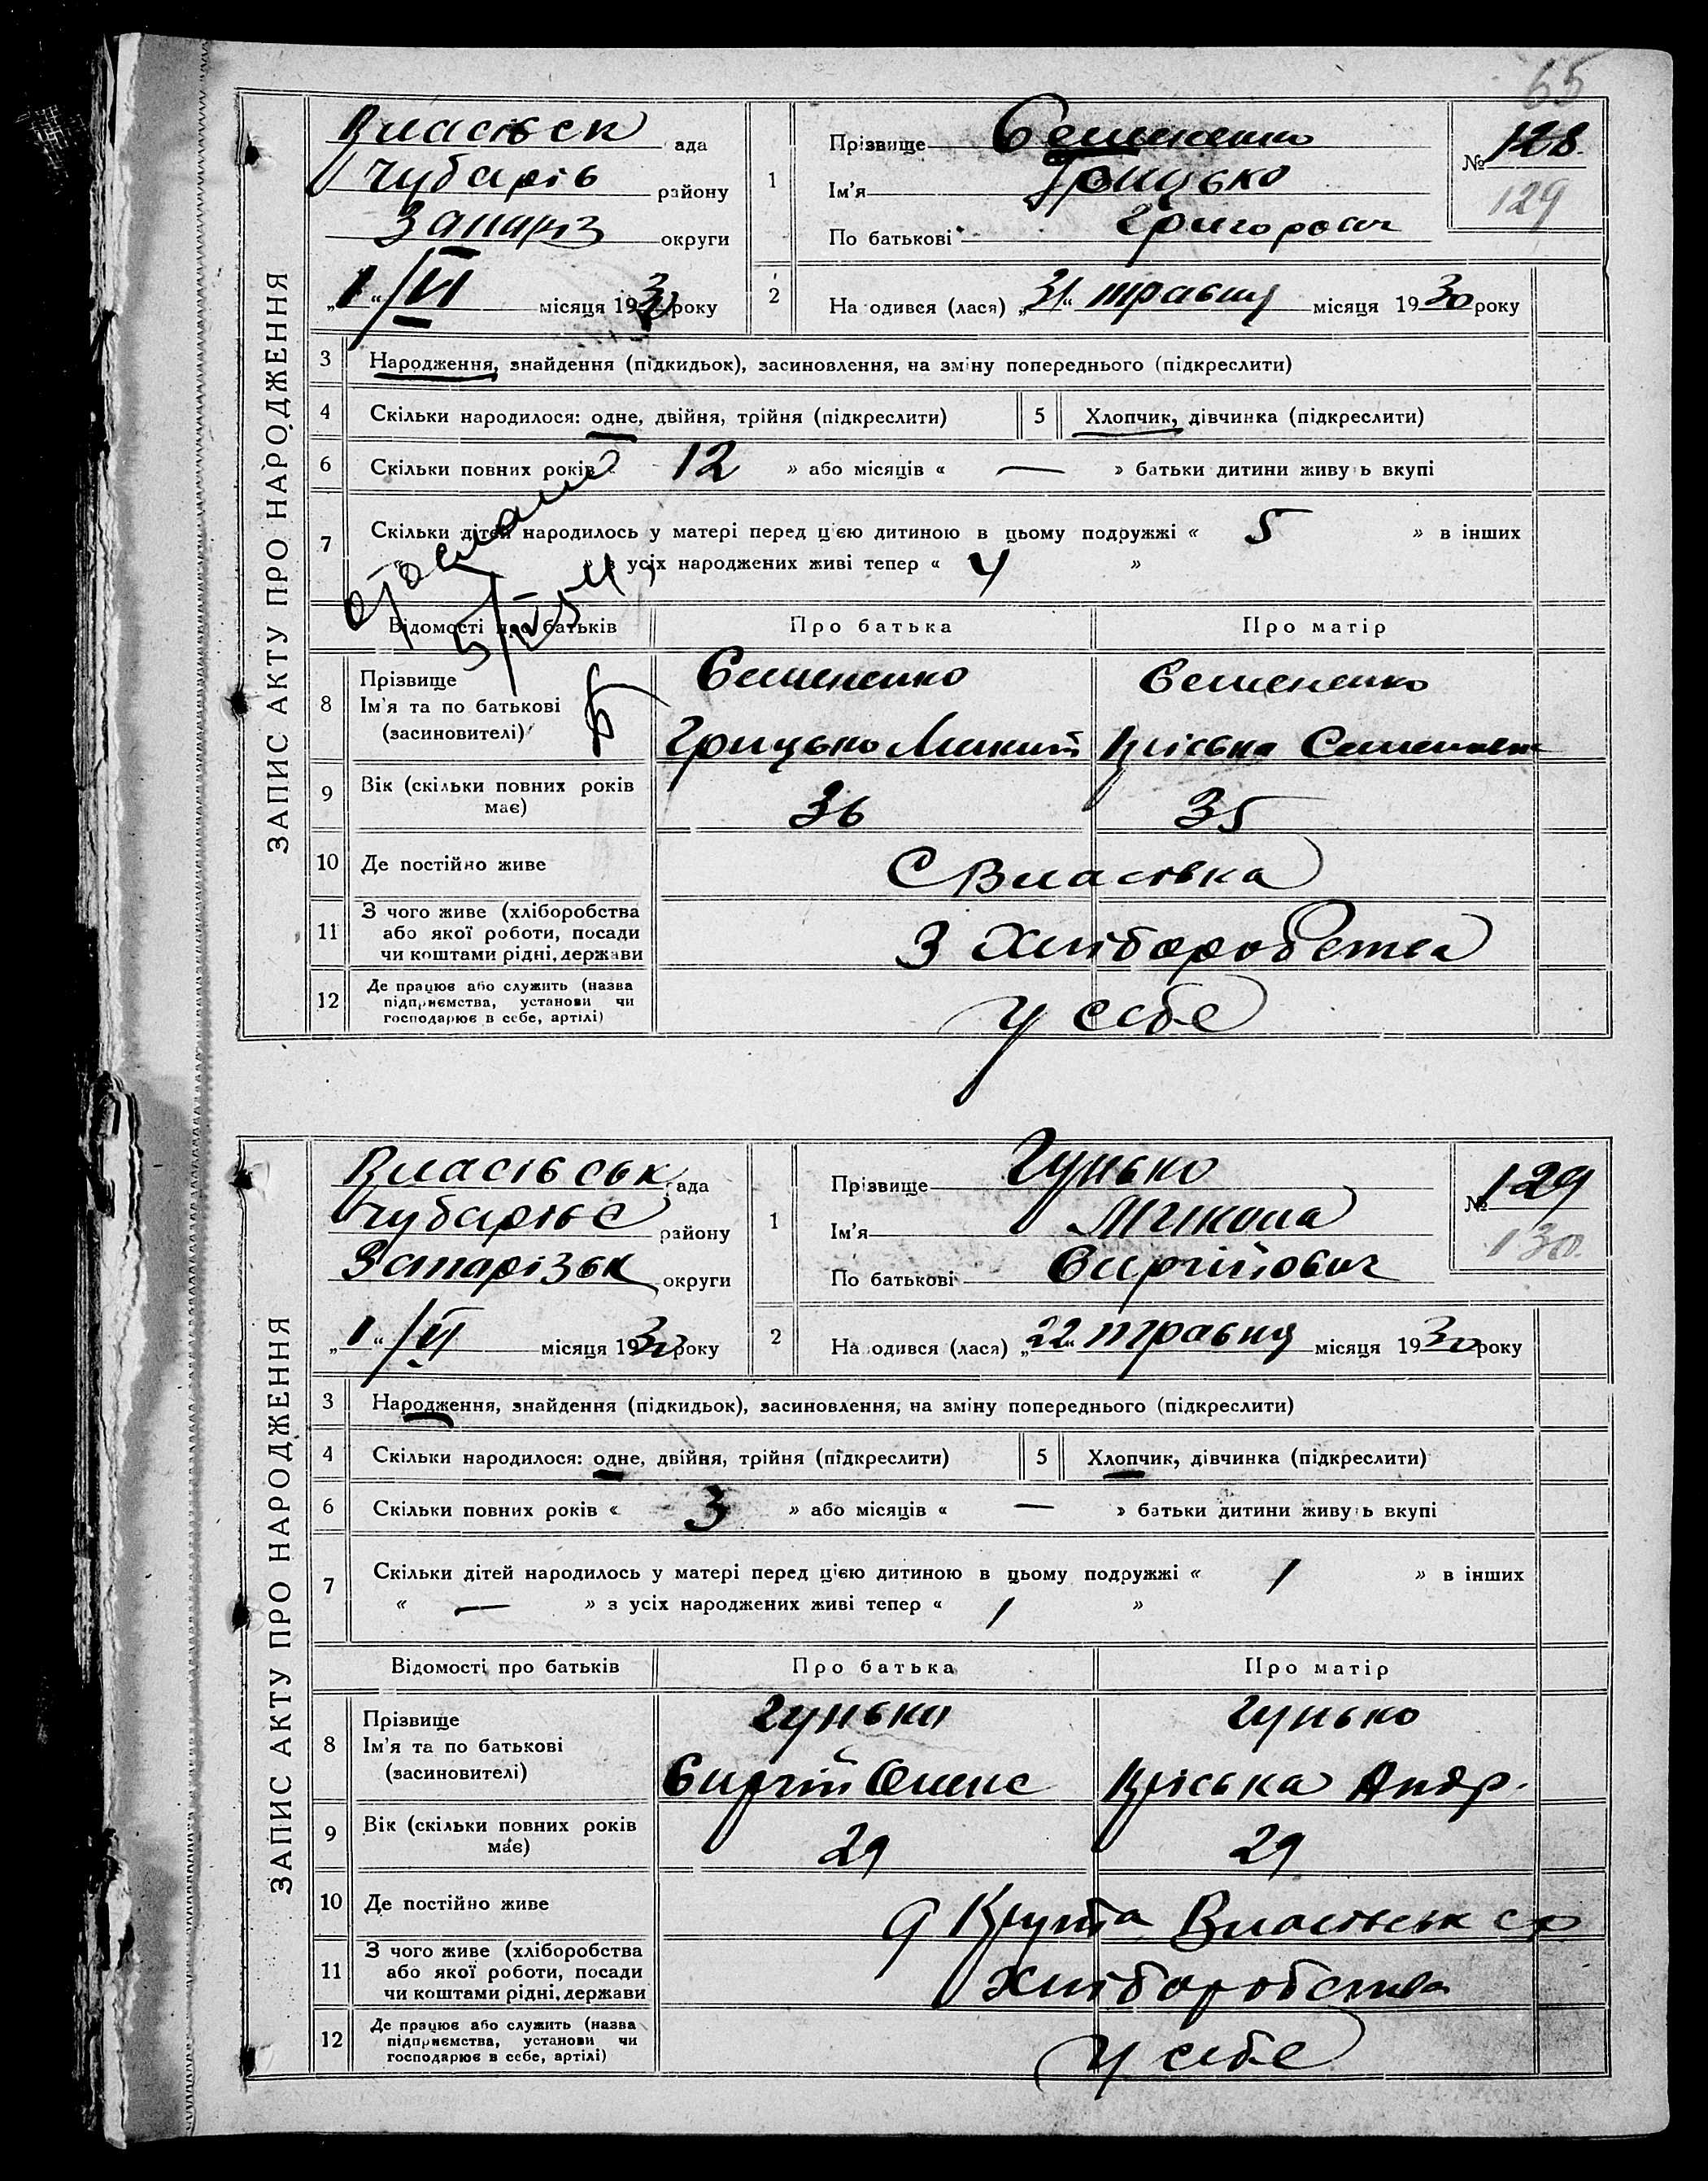 65
ЗАПИС АКТУ ПРО НАРОДЖЕННЯ
Власівськ ада
Чубарів району
Запоріз округи
„1“/VI місяця 1930 року
1
Прізвище Семененко
Ім'я Грицько
По батькові Григорович
№ 128
129
2
На одився (лася) „31“ травня місяця 1930 року
3 Народження, знайдення (підкидьок), засиновлення, на зміну попереднього (підкреслити)
4 Скільки народилося: одне, двійня, трійня (підкреслити)
5 Хлопчик, дівчинка (підкреслити)
6 Скільки повних років 12 » або місяців « — » батьки дитини живуь вкупі
7 Скільки дітей народилось у матері перед цією дитиною в цьому подружжі « 5 » в інших
» з усіх народжених живі тепер « 4 »
Відомості про батьків Про батька Про матір
8 Прізвище
Ім'я та по батькові
(засиновителі)
Семененко Семененко
Грицько Микит Пріська Семенівн
9 Вік (скільки повних років
має)
36 35
10 Де постійно живе С Власівка
11 З чого живе (хліборобства
або якої роботи, посади
чи коштами рідні, держави
З Хліборобства
12 Де працює або служить (назва
підприємства, установи чи
господарює в себе, артілі)
у себе
ЗАПИС АКТУ ПРО НАРОДЖЕННЯ
Власівськ ада
Чубарівс району
Запорізьк округи
„1“/VI місяця 1930 року
1
Прізвище Гунько
Ім'я Микола
По батькові Сиргійович
№ 129
130
2
На одився (лася) „22“ травня місяця 1930 року
3 Народження, знайдення (підкидьок), засиновлення, на зміну попереднього (підкреслити)
4 Скільки народилося: одне, двійня, трійня (підкреслити)
5 Хлопчик, дівчинка (підкреслити)
6 Скільки повних років « 3 » або місяців « — » батьки дитини живуь вкупі
7 Скільки дітей народилось у матері перед цією дитиною в цьому подружжі « 1 » в інших
« — » з усіх народжених живі тепер « 1 »
Відомості про батьків Про батька Про матір
8 Прізвище
Ім'я та по батькові
(засиновителі)
Гунько Гунько
Сиргій Олекс Пріська Андр.
9 Вік (скільки повних років
має)
29 29
10 Де постійно живе Власівськ
11 З чого живе (хліборобства
або якої роботи, посади
чи коштами рідні, держави
Хліборобства
12 Де працює або служить (назва
підприємства, установи чи
господарює в себе, артілі)
у себе